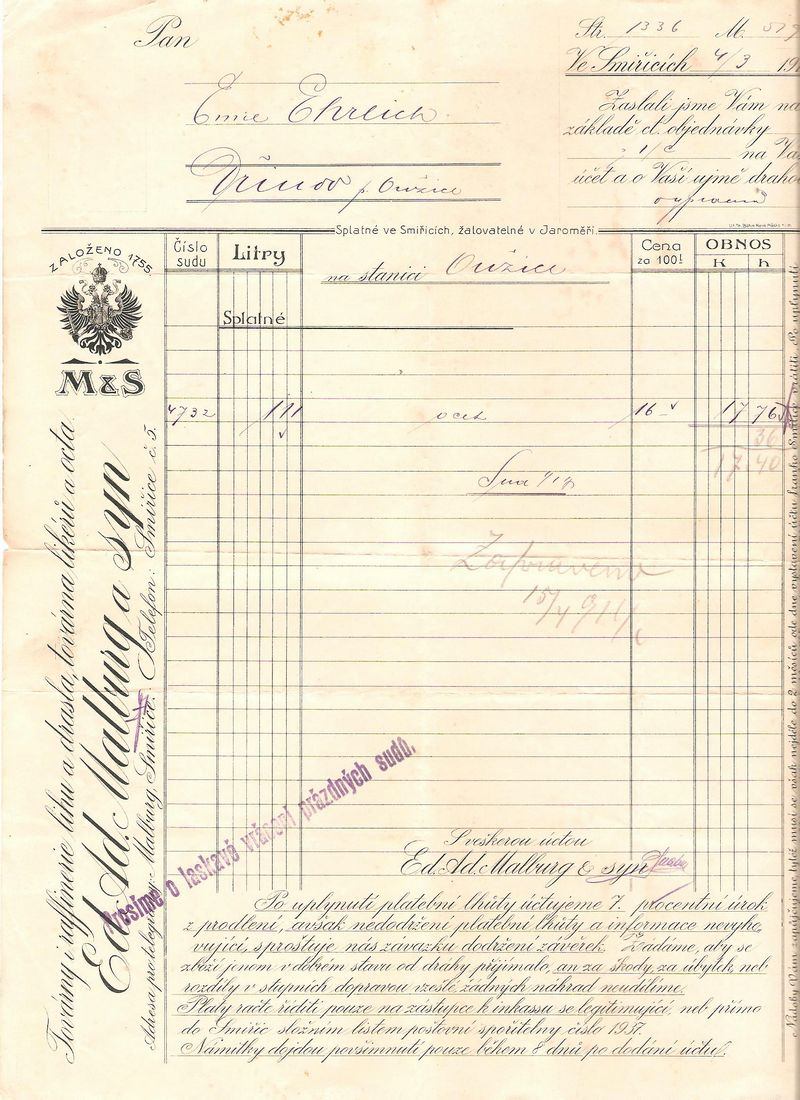 Pan
Str. 1336 M.
Ve Smiřicích 4/3 19
Emil Ehrlich
Zaslali jsme Vám na
základě ct. objednávky
na Va
účet a o Vaší ujmě draho
Splatné ve Smiřicích, žalovatelné v Jaroměři.
ZALOŽENO 1755.
Číslo sudu
Litry
na stanici Oužice
Cena za 100 l
OBNOS
K h
Splatné
M & S
4732 111 ocet 16 - 17 76
36
17.40
Zapraveno
15/4 911
Továrny i raffinerie lihu a drasla, továrna likérů a octa
Ed. Ad. Malburg a syn
Adresa pro telegramy: Malburg, Smiřice. Telefon: Smiřice č. 5.
Prosíme o laskavé vrácení prázdných sudů.
S veškerou úctou
Ed. Ad. Malburg & syn
Po uplynutí platební lhůty účtujeme 7. procentní úrok
z prodlení, avšak nedodržení platební lhůty a informace nevyho-
vující, sprošťuje nás závazku dodržení závěrek. Žádáme, aby se
zboží jenom v dobrém stavu od dráhy přijímalo, an za škody, za úbytek, neb
rozdíly v stupních dopravou vzešlé žádných náhrad neudílíme.
Platy račte říditi pouze na zástupce k inkassu se legitimující, neb přímo
do Smiřic složním listem poštovní spořitelny číslo 1937.
Námitky dojdou povšimnutí pouze během 8 dnů po dodání účtu.
Nádoby Vám zapůjčujeme, tyto musí se však nejdéle do 2 měsíců ode dne vystavení účtu franko Smiřice vrátiti. Po uplynutí